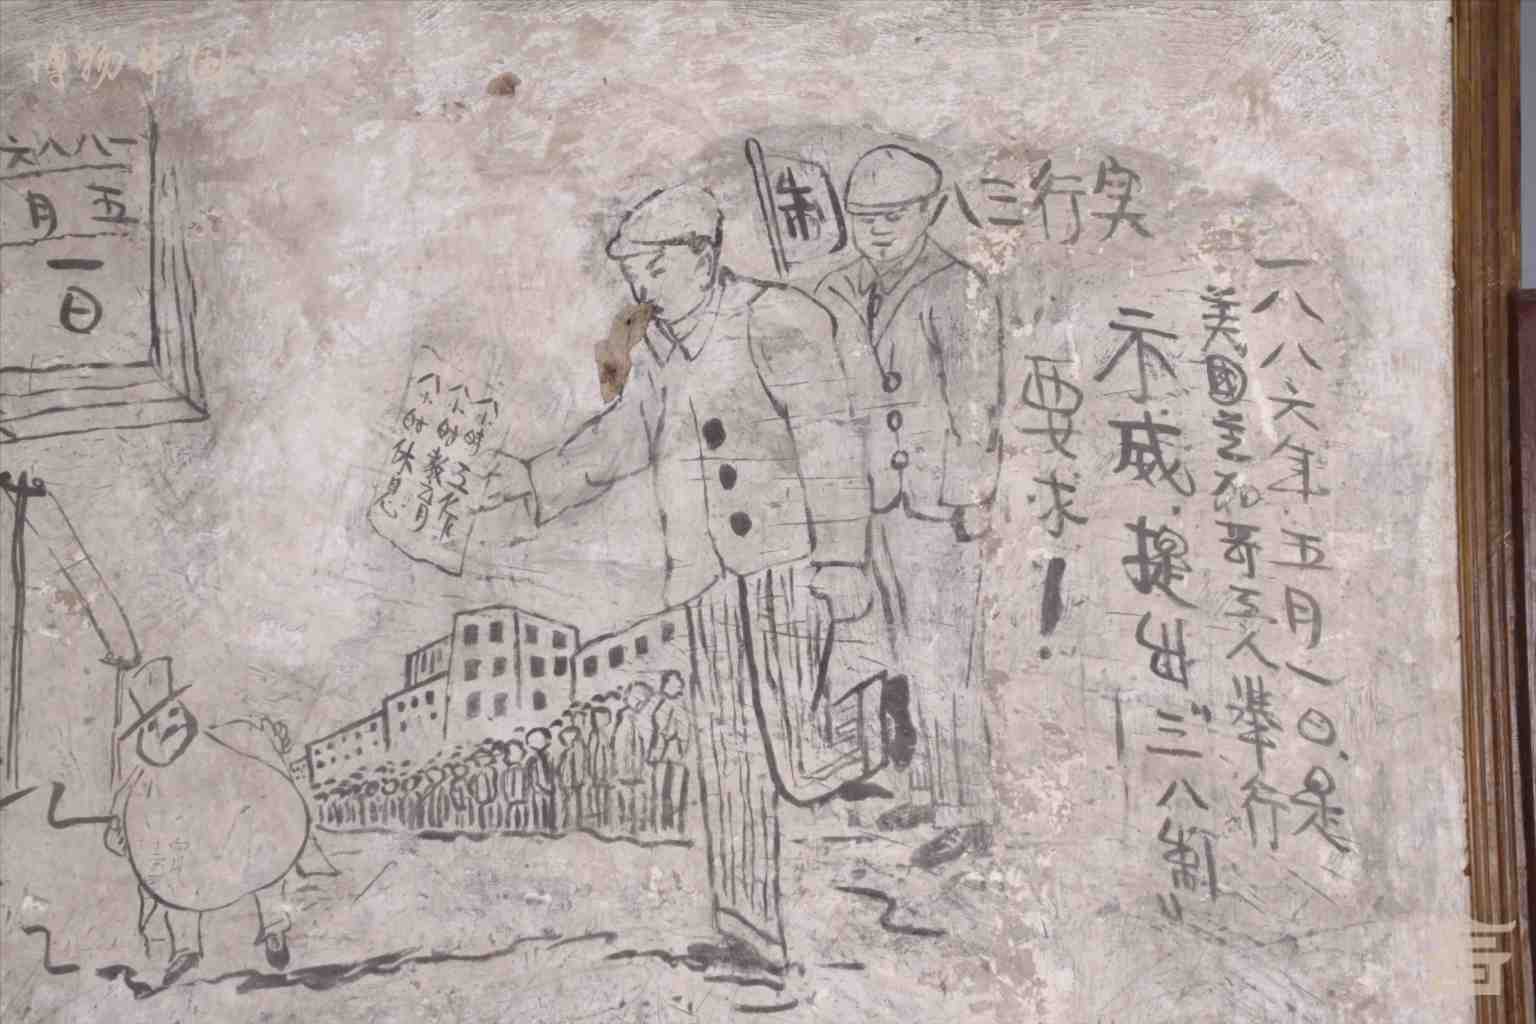 一八八六年五月一日，是
美國芝加哥工人举行
示威，提出“三八制”
要求！
实行三八制
八小时工作
八小时教育
八小时休息
一八八六
五月
一日